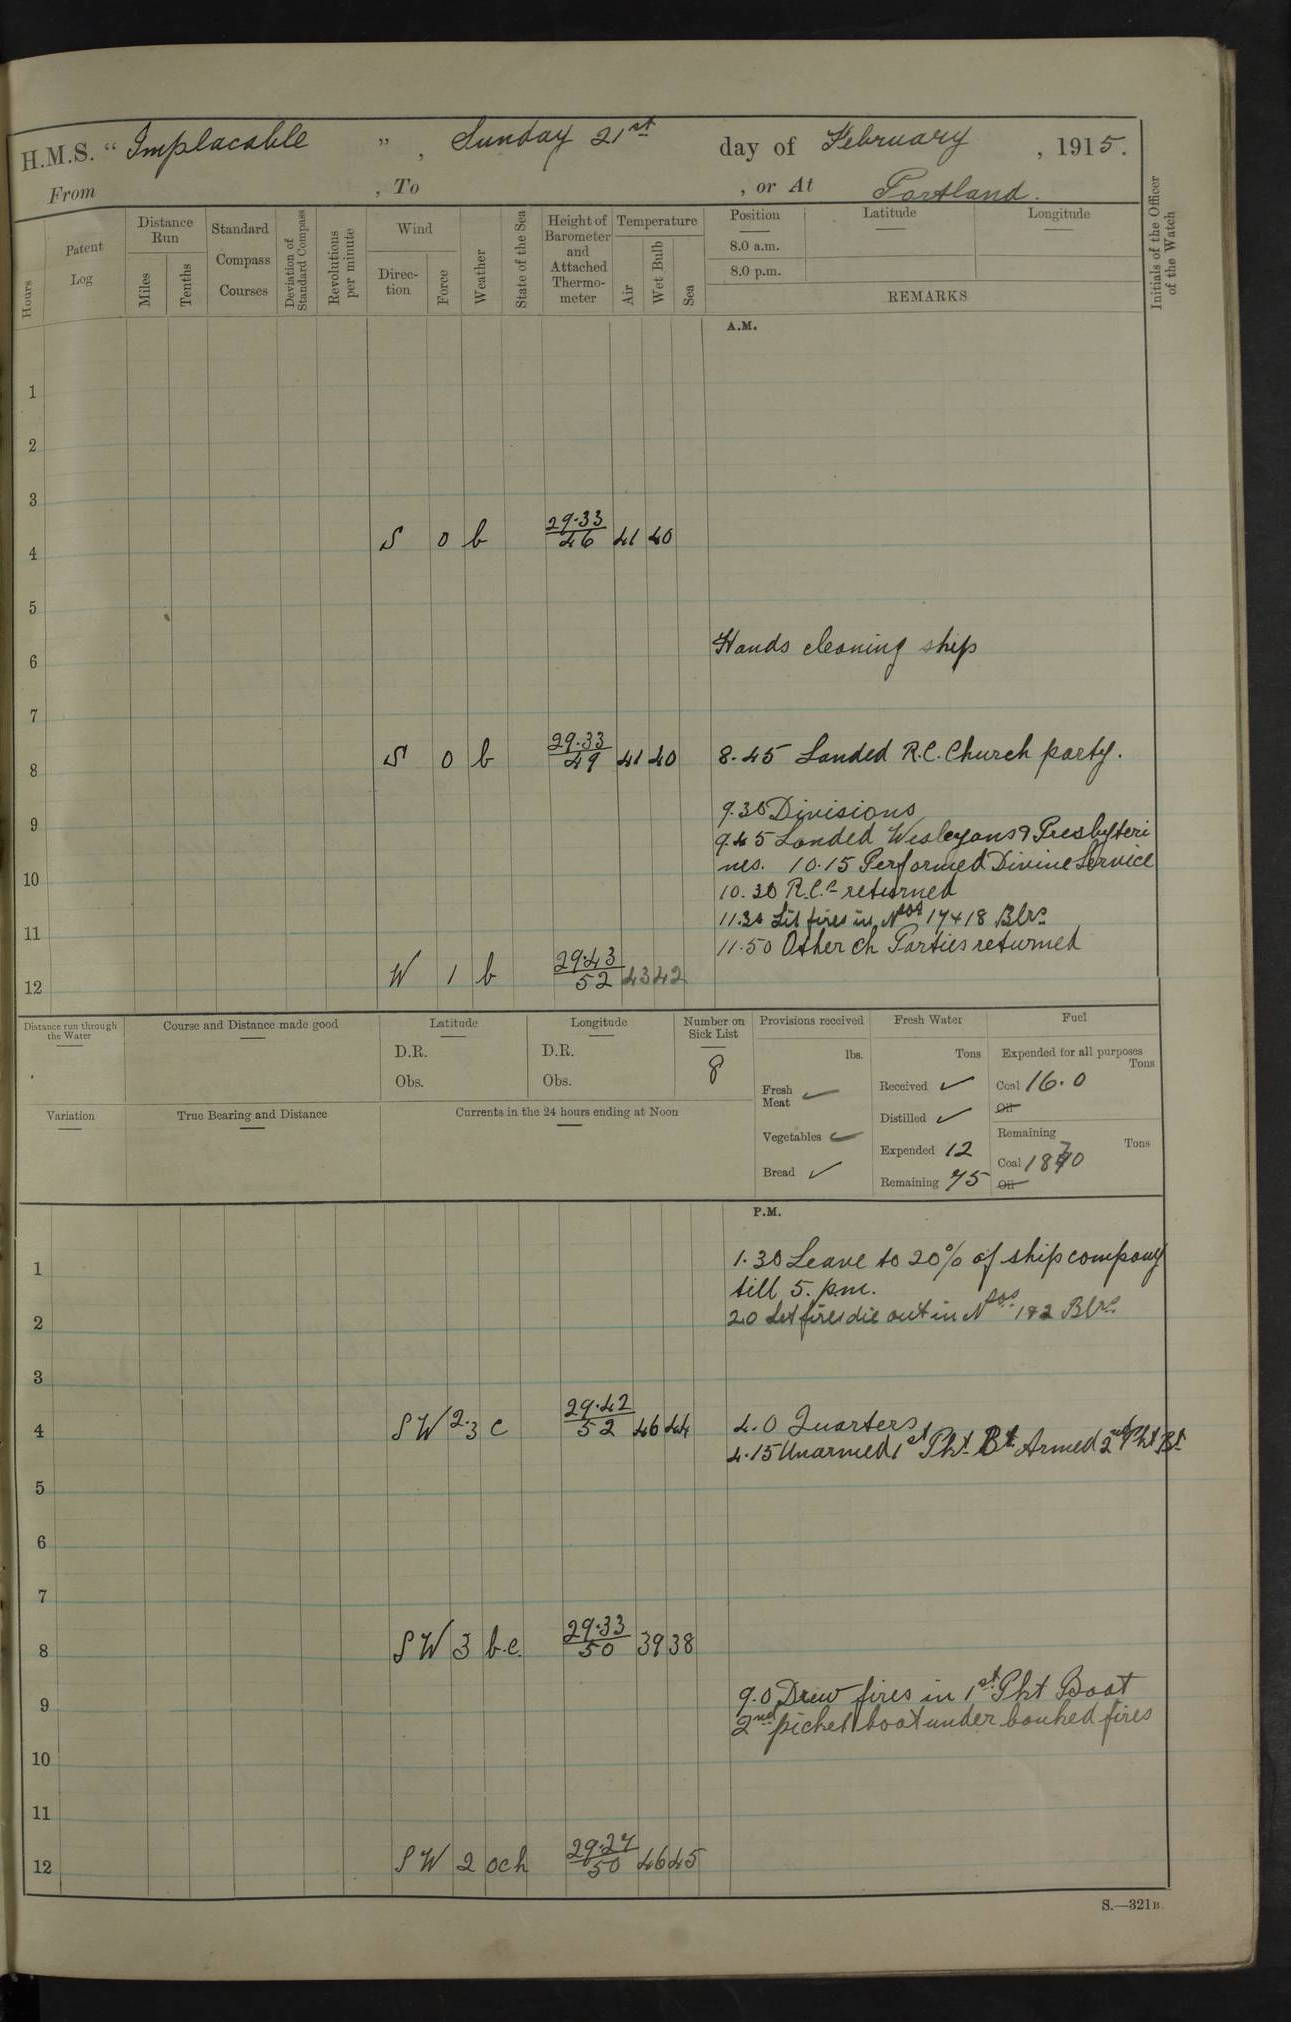 H.M.S. "Implacable", Sunday 21st day of February, 1915.
From , To , or At Portland.
Hours
Patent Log
Distance Run
Miles
Tenths
Standard Compass Courses
Deviation of Standard Compass
Revolutions per minute
Wind
Direc-tion
Force
Weather
State of the Sea
Height of Barometer and Attached Thermo-meter
Temperature
Air
Wet Bulb
Sea
Position
8.0 a.m.
8.0 p.m.
Latitude
Longitude
REMARKS
Initials of the Officer of the Watch
A.M.
1
2
3
4 S 0 b 29.33 46 41 40
5
Hands cleaning ship
6
7
8 S 0 b 29.33 49 41 40 8.45 Landed R.C. Church party.
9.30 Divisions
9 9.45 Landed Wesleyans & Presbyteri
nes. 10.15 Performed Divine Service
10 10.30 R.C.s returned
11.30 Lit fires in Nos 17 & 18 Blrs
11 11.50 Other Ch Parties returned
12 W 1 b 29.43 52 43 42
Distance run through the Water
Course and Distance made good
Latitude
D.R.
Obs.
Longitude
D.R.
Obs.
Number on Sick List
8
Provisions received
lbs.
Fresh Meat ✓
Vegetables ✓
Bread ✓
Fresh Water
Tons
Received ✓
Distilled ✓
Expended 12
Remaining 75
Fuel
Expended for all purposes
Tons
Coal 16.0
Oil
Remaining
Tons
Coal 1870
Oil
Variation
True Bearing and Distance
Currents in the 24 hours ending at Noon
P.M.
1 1.30 Leave to 20% of ship company
till 5. pm.
2 2.0 Let fires die out in Nos 1 & 2 Blrs.
3
4 SW 2.3 c 29.42 52 46 44 4.0 Quarters
4.15 Unarmed 1st Pkt Bt Armed 2nd Pkt Bt
5
6
7
8 SW 3 b.c. 29.33 50 39 38
9 9.0 Drew fires in 1st Pkt Boat
2nd picket boat under banked fires
10
11
12 SW 2 och 29.27 50 46 45
S.—321B.